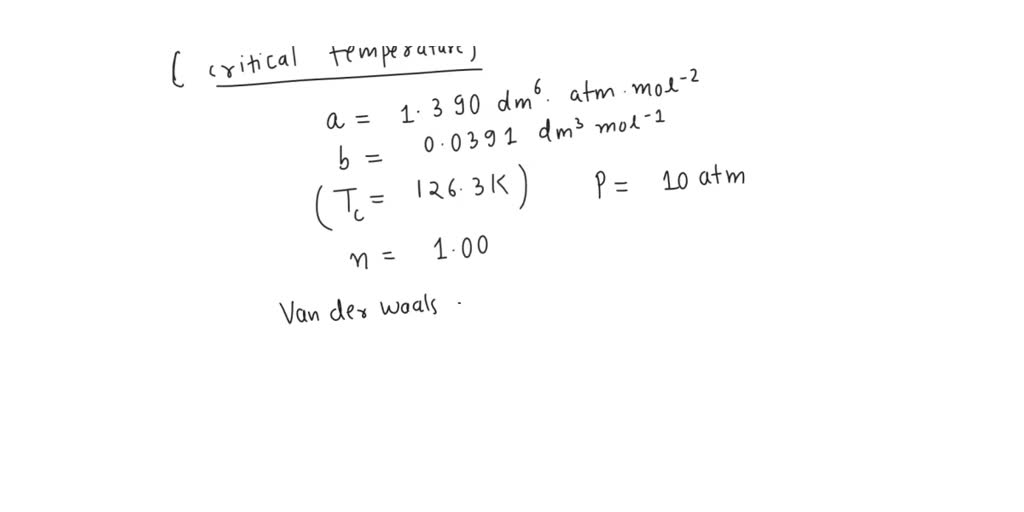 ( critical temperature)
a = 1.390 dm⁶. atm. mol⁻²
b = 0.0391 dm³ mol⁻¹
(Tc = 126.3K) P = 10 atm
n = 1.00
Van der waals .